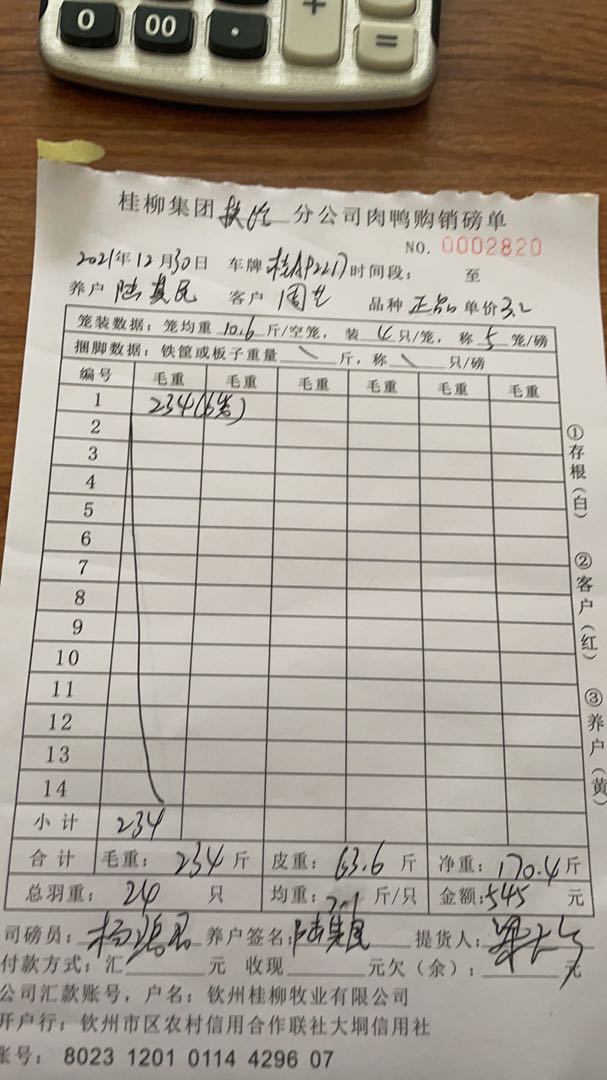 0 00 · + =
桂柳集团 分公司肉鸭购销磅单
NO. 0002820
2021年12月30日 车牌 桂AP2217 时间段: 至
养户 陆其民 客户 周 品种 正品 单价3.2
笼装数据:笼均重 10.6 斤/空笼,装 4 只/笼,称 5 笼/磅
捆脚数据:铁筐或板子重量 \ 斤,称 \ 只/磅
编号 毛重 毛重 毛重 毛重 毛重 毛重
1 234(6笼)
2
3
4
5
6
7
8
9
10
11
12
13
14
小计 234
合计 毛重: 234 斤 皮重: 63.6 斤 净重: 170.4 斤
总羽重: 24 只 均重: 7.1 斤/只 金额: 545 元
司磅员: 杨 养户签名: 陆其民 提货人:
付款方式:汇 元 收现 元欠(余): 元
公司汇款账号,户名:钦州桂柳牧业有限公司
开户行:钦州市区农村信用合作联社大垌信用社
账号: 8023 1201 0114 4296 07
①存根(白)
②客户(红)
③养户(黄)